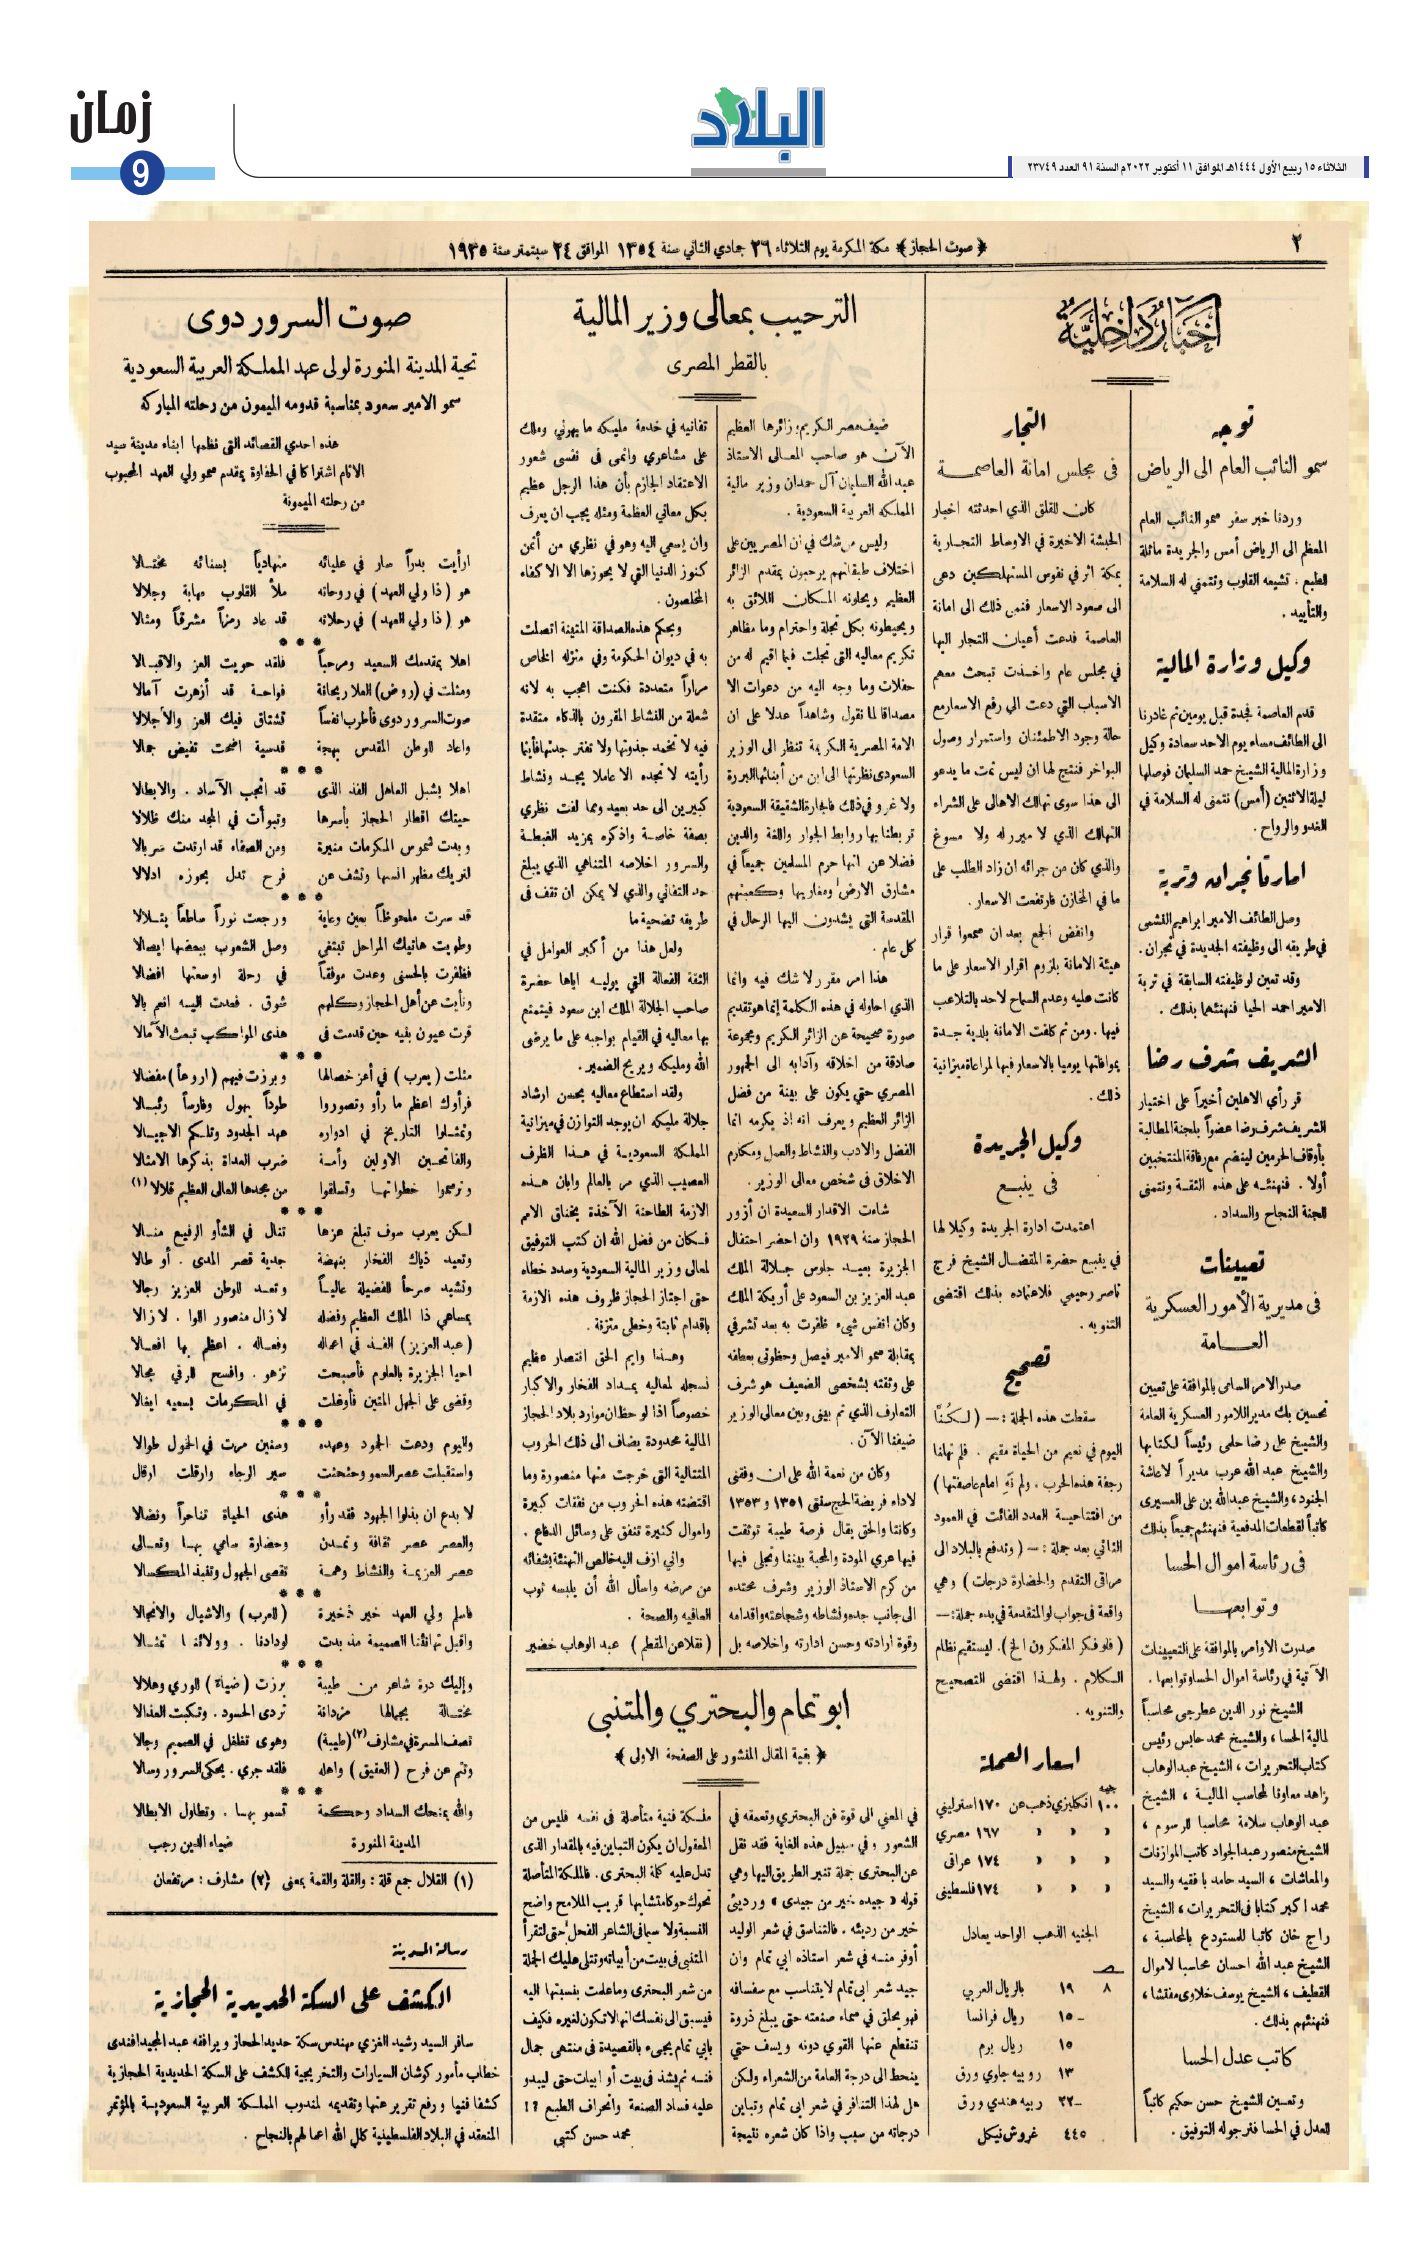 زمان
9
البلاد
الثلاثاء ١٥ ربيع الأول ١٤٤٤هـ الموافق ١١ أكتوبر ٢٠٢٢م السنة ٩١ العدد ٢٣٧٤٩
٢
﴿ صوت الحجاز ﴾ مكة المكرمة يوم الثلاثاء ٢٦ جمادي الثاني سنة ١٣٥٤ الموافق ٢٤ سبتمبر سنة ١٩٣٥
أخبار داخلية
توجه
سمو النائب العام الى الرياض
وردنا خبر سفر سمو النائب العام
المعظم الى الرياض أمس والجريدة ماثلة
للطبع . تشيعه القلوب ونتمنى له السلامة
والتأييد .
وكيل وزارة المالية
قدم العاصمة فجدة قبل يومين ثم غادرنا
الى الطائف مساء يوم الاحد سعادة وكيل
وزارة المالية الشيخ حمد السليمان فوصلها
ليلة الاثنين (أمس) نتمنى له السلامة في
الغدو والرواح .
امارتا نجران وتربة
وصل الطائف الامير ابراهيم النشمى
في طريقه الى وظيفته الجديدة في نجران .
وقد تعين لوظيفته السابقة في تربة
الامير احمد الحيا فنهنئهما بذلك .
الشريف شرف رضا
قر رأي الاهلين أخيراً على اختيار
الشريف شرف رضا عضواً بلجنة المطالبة
بأوقاف الحرمين لينضم مع رفاقة المنتخبين
أولا . فنهنئه على هذه الثقة ونتمنى
للجنة النجاح والسداد .
تعيينات
فى مديرية الأمور العسكرية
العامة
صدر الامر السامى بالموافقة على تعيين
تحسين بك مدير اللامور العسكرية العامة
والشيخ على رضا حلمى رئيساً لكتابها
والشيخ عبد الله عرب مديراً لاعاشة
الجنود ، والشيخ عبدالله بن على العسيرى
كاتباً لقطعات المدفعية فنهنئهم جميعاً بذلك
فى رئاسة اموال الحسا
وتوابعها
صدرت الاوامر بالموافقة على التعيينات
الآتية في رئاسة اموال الحسا وتوابعها .
الشيخ نور الدين عطرجى محاسباً
لمالية الحسا ، والشيخ محمد حابس رئيس
كتاب التحريرات ، الشيخ عبد الوهاب
زاهد معاونا لمحاسب المالية ، الشيخ
عبد الوهاب سلامة محاسبا للرسوم ،
الشيخ منصور عبد الجواد كاتب الموازنات
والمعاشات ، السيد حامد بافقيه والسيد
محمد اكبر كتابا فى التحريرات ، الشيخ
راج خان كاتبا للمستودع بالمحاسبة ،
الشيخ عبد الله احسان محاسبا لاموال
القطيف ، الشيخ يوسف خلاوى مفتشا ،
فنهنئهم بذلك .
كاتب عدل الحسا
وتعين الشيخ حسن حكيم كاتباً
للعدل في الحسا فنرجو له التوفيق .
التجار
فى مجلس امانة العاصمة
كان للقلق الذي احدثته اخبار
الحبشة الاخيرة في الاوساط التجارية
بمكة اثر في نفوس المستهلكين دعى
الى صعود الاسعار فنمى ذلك الى امانة
العاصمة فدعت أعيان التجار اليها
في مجلس عام واخذت تبحث معهم
الاسباب التي دعت الي رفع الاسعار مع
حالة وجود الاطمئنان واستمرار وصول
البواخر فنتج لها ان ليس ثمت ما يدعو
الى هذا سوى تهالك الاهالى على الشراء
التهالك الذي لا مبرر له ولا مسوغ
والذي كان من جرائه ان زاد الطلب على
ما في المخازن فارتفعت الاسعار .
وانفض الجمع بعد ان سمعوا قرار
هيئة الامانة بلزوم اقرار الاسعار على ما
كانت عليه وعدم السماح لاحد بالتلاعب
فيها . ومن ثم كلفت الامانة بلدية جدة
بموافاتها يوميا بالاسعار فيها لمراعاة ميزانية
ذلك .
وكيل الجريدة
فى ينبع
اعتمدت ادارة الجريدة وكيلا لها
في ينبع حضرة المفضال الشيخ فرج
ناصر رحيمي فلاعتماده بذلك اقتضى
التنويه .
تصحيح
سقطت هذه الجملة : — ( لـكُنّا
اليوم في نعيم من الحياة مقيم . فلم تهلنا
رجفة هذه الحرب . ولم نَهِ امام عاصفتها )
من افتتاحية العدد الفائت في العمود
الثاني بعد جملة : — ( وتدفع بالبلاد الى
مراقي التقدم والحضارة درجات ) وهي
واقعة فى جواب لو المتقدمة في بدء جملة : —
( فلو فكر المفكرون الخ ) . ليستقيم نظام
الكلام . ولهذا اقتضى التصحيح
والتنويه .
اسعار العملة
جنيه
١٠٠ انكليزي ذهب عن ١٧٠ استرليني
» » » ١٦٧ مصري
» » » ١٧٤ عراقى
» » » ١٧٤ فلسطيني
الجنيه الذهب الواحد يعادل
٨ ١٩ بالريال العربي
١٥ـ ريال فرانسا
١٥ ريال برم
١٣ روبيه جاوي ورق
٢٢ـ ربيه هندي ورق
٤٤٥ غروش نيكل
الترحيب بمعالى وزير المالية
بالقطر المصرى
ضيف مصر الكريم ؛ زائرها العظيم
الآن هو صاحب المعالى الاستاذ
عبد الله السليمان آل حمدان وزير مالية
المملكة العربية السعودية .
وليس من شك في ان المصريين على
اختلاف طبقاتهم يرحبون بمقدم الزائر
العظيم ويحلونه المكان اللائق به
ويحيطونه بكل تجلة واحترام وما مظاهر
تكريم معاليه التى تجلت فيما اقيم له من
حفلات وما وجه اليه من دعوات الا
مصداقا لما نقول وشاهداً عدلا على ان
الامة المصرية الكريمة تنظر الى الوزير
السعودى نظرتها الى ابن من أبنائها البررة
ولا غرو في ذلك فالجارة الشقيقة السعودية
تربطنا بها روابط الجوار واللغة والدين
فضلا عن انها حرم المسلمين جميعاً في
مشارق الارض ومغاربها وكعبتهم
المقدسة التى يشدون اليها الرحال في
كل عام .
هذا امر مقرر لا شك فيه وانما
الذي احاوله في هذه الكلمة إنما هو تقديم
صورة صحيحة عن الزائر الكريم ومجموعة
صادقة من اخلاقه وآدابه الى الجمهور
المصري حتي يكون على بينة من فضل
الزائر العظيم ويعرف انه إذ يكرمه انما
الفضل والادب والنشاط والعمل ومكارم
الاخلاق فى شخص معالى الوزير .
شاءت الاقدار السعيدة ان أزور
الحجاز سنة ١٩٢٩ وان احضر احتفال
الجزيرة بعيد جلوس جلالة الملك
عبد العزيز بن السعود على أريكة الملك
وكان انفس شيء ظفرت به بعد تشرفي
بمقابلة سمو الامير فيصل وحظوتي بعطفه
على وثقته بشخصى الضعيف هو شرف
التعارف الذي تم بيني وبين معالى الوزير
ضيفنا الآن .
وكان من نعمة الله على ان وفقنى
لاداء فريضة الحج سنتى ١٣٥١ و ١٣٥٣
وكانتا والحق يقال فرصة طيبة توثقت
فيها عري المودة والمحبة بيننا وتجلى فيها
من كرم الاستاذ الوزير وشرف محتده
الى جانب جده ونشاطه وشجاعته واقدامه
وقوة ارادته وحسن ادارته واخلاصه بل
تفانيه في خدمة مليكه ما بهرني وملك
على مشاعري وانمى فى نفسى شعور
الاعتقاد الجازم بأن هذا الرجل عظيم
بكل معاني العظمة ومثله يجب ان يعرف
وان يسعى اليه وهو في نظري من أثمن
كنوز الدنيا التي لا يحوزها الا الاكفاء
المخلصون .
وبحكم هذه الصداقة المتينة اتصلت
به في ديوان الحكومة وفي منزله الخاص
مراراً متعددة فكنت اعجب به لانه
شعلة من النشاط المقرون بالذكاء متقدة
فيه لا تخمد جذوتها ولا تفتر حدتها فأينما
رأيته لا تجده الا عاملا بجد ونشاط
كبيرين الى حد بعيد ومما لفت نظري
بصفة خاصة واذكره بمزيد الغبطة
والسرور اخلاصه المتناهي الذي يبلغ
حد التفاني والذي لا يمكن ان تقف فى
طريقه تضحية ما
ولعل هذا من أكبر العوامل في
الثقة الغالية التي يوليه اياها حضرة
صاحب الجلالة الملك ابن سعود فيتمتع
بها معاليه في القيام بواجبه على ما يرضى
الله ومليكه ويريح الضمير .
ولقد استطاع معاليه بحسن ارشاد
جلالة مليكه ان يوجد التوازن في ميزانية
المملكة السعودية في هذا الظرف
العصيب الذي مر بالعالم وابان هذه
الازمة الطاحنة الآخذة بخناق الامم
فكان من فضل الله ان كتب التوفيق
لمعالى وزير المالية السعودية وسدد خطاه
حتى اجتاز الحجاز ظروف هذه الازمة
باقدام ثابتة وخطى متزنة .
وهذا وايم الحق انتصار عظيم
نسجله لمعاليه بمداد الفخار والاكبار
خصوصاً اذا لوحظ ان موارد بلاد الحجاز
المالية محدودة يضاف الى ذلك الحروب
المتتالية التى خرجت منها منصورة وما
اقتضته هذه الحروب من نفقات كبيرة
واموال كثيرة تنفق على وسائل الدفاع .
واني ازف اليه خالص التهنئة بشفائه
من مرضه واسأل الله أن يلبسه ثوب
العافيه والصحة .
( نقلا عن المقطم ) عبد الوهاب خضير
ابو تمام والبحتري والمتنبى
﴿ بقية المقال المنشور على الصفحة الاولى ﴾
في المعنى الى قوة فن البحتري وتعمقه في
الشعور ، وفي سبيل هذه الغاية فقد نقل
عن البحترى جملة تنير الطريق اليها وهي
قوله « جيده خير من جيدى » ورديئى
خير من رديئه . فالتناسق في شعر الوليد
أوفر منه في شعر استاذه ابي تمام وان
جيد شعر ابى تمام لا يتناسب مع سفسافه
فهو يحلق في سماء صنعته حتى يبلغ ذروة
تنقطع عنها القوي دونه ويسف حتي
ينحط الى درجة العامة من الشعراء ولكن
هل لهذا التنافر في شعر ابى تمام وتباين
درجاته من سبب واذا كان شعره نتيجة
ملكة فنية متأصلة فى نفسه فليس من
المعقول ان يكون التباين فيه بالمقدار الذى
تدل عليه كلمة البحترى . فالملكة المتأصلة
تحوك حوكا متشابها قريب الملامح واضح
النسبة ولا سيما فى الشاعر الفحل حتى لتقرأ
المتنبى فى بيت من أبياته وتتلى عليك الجملة
من شعر البحترى وما علمت بنسبتها اليه
فيسبق الى نفسك انها لا تكون لغيره فكيف
بابي تمام يجىء بالقصيدة فى منتهى جمال
فنه ثم يشذ فى بيت أو ابيات حتى ليبدو
عليه فساد الصنعة وانحراف الطبع ؟!
محمد حسن كتبى
صوت السرور دوى
تحية المدينة المنورة لولى عهد المملكة العربية السعودية
سمو الامير سعود بمناسبة قدومه الميمون من رحلته المباركة
هذه احدي القصائد التى نظمها ابناء مدينة سيد
الانام اشتراكا في الحفاوة بمقدم سمو ولي العهد المحبوب
من رحلته الميمونة
ارأيت بدراً سار في عليائه متهادياً بسنائه مختالا
هو ( ذا ولي العهد ) في روحاته ملأ القلوب مهابة وجلالا
هو ( ذا ولي العهد ) في رحلاته قد عاد رمزاً مشرقاً ومثالا
* * *
اهلا بمقدمك السعيد ومرحباً فلقد حويت العز والاقبالا
ومثلت في (روض) العلا ريحانة فواحة قد أزهرت آمالا
صوت السرور دوى فأطرب انفساً تشتاق فيك العز والأجلالا
واعاد للوطن المقدس بهجة قدسية اضحت تفيض جمالا
* * *
اهلا بشبل العاهل الفذ الذى قد انجب الآساد . والابطالا
حيتك اقطار الحجاز بأسرها وتبوأت في المجد منك ظلالا
وبدت شموس المكرمات منيرة ومن الصفاء قد ارتدت سربالا
لتريك مظهر انسها وتشف عن فرح تدل بحوزه ادلالا
* * *
قد سرت ملحوظاً بعين وعاية ورجعت نوراً ساطعاً يتلالا
وطويت هاتيك المراحل تبتغي وصل الشعوب ببعضها ايصالا
فظفرت بالحسنى وعدت موفقاً في رحلة اوسعتها افضالا
ونأيت عن أهل الحجاز وكلهم شوق . فعدت اليه انعم بالا
قرت عيون بنيه حين قدمت فى هذى المواكب تبعث الآمالا
* * *
مثلت ( يعرب ) في أعز خصالها وبرزت فيهم ( اروعاً ) مفضالا
فرأوك اعظم ما رأو وتصوروا طوداً يهول وفارساً رئبالا
وتمثلوا التاريخ في ادواره عهد الجدود وتلكم الاجيالا
والفاتحين الاولين وأمة ضرب العداة بذكرها الامثالا
وترسموا خطواتها وتسلقوا من مجدها العالى العظيم قلالا (١)
* * *
لكن يعرب سوف تبلغ عزها تنال في الشأو الرفيع منالا
وتعيد ذياك الفخار بنهضة جدية قصر المدى . أو طالا
وتشيد صرحاً للفضيلة عالياً وتعد للوطن العزيز رجالا
بمساهي ذا الملك العظيم وفضله لازال منصور اللوا . لازالا
( عبد العزيز ) الفذ في اعماله وفعاله . اعظم بها افعالا
احيا الجزيرة بالعلوم فأصبحت تزهو . وافسح للرقي مجالا
وقضى على الجهل المتين فأوغلت في المكرمات بسعيه ايغالا
* * *
واليوم ودعت الجمود وعهده وسنين مرت في الخول طوالا
واستقبلت عصر السمو وحثحثت سير الرجاء وارقلت ارقال
* * *
لا بدع ان بذلوا الجهود فقد رأو هذى الحياة تناحراً ونضالا
والعصر عصر ثقافة وتمدن وحضارة سامي بها وتعالى
عصر العزيمة والنشاط وهمة تقصى الجهول وتنبذ المكسالا
* * *
فاسلم ولي العهد خير ذخيرة ( للعرب ) والاشبال والانجالا
واقبل تهانئنا الصميمة مذ بدت لودادنا . وولائنا تمثالا
* * *
وإليك درة شاعر من طيبة برزت ( ضياءً ) للوري وهلالا
مختالة بجمالها مزدانة تردى الحسود . وتكبت العذالا
تصف المسرة في مشارف (٢) (طيبة) وهوى تغلغل في الصميم وجالا
وتتم عن فرح ( العقيق ) واهله فلقد جري . يحكى السرور وسالا
* * *
والله يمنحك السداد وحكمة تسمو بها . وتطاول الابطالا
المدينة المنورة ضياء الدين رجب
(١) القلال جمع قلة : والقلة والقمة بمعنى (٢) مشارف : مرتفعان
رسالة المدينة
الكشف على السكة الحديدية الحجازية
سافر السيد رشيد الغزي مهندس سكة حديد الحجاز ويرافقه عبد المجيد افندى
خطاب مأمور كوشان السيارات والتخريجية للكشف على السكة الحديدية الحجازية
كشفا فنيا ورفع تقرير عنها وتقديمه لمندوب المملكة العربية السعودية بالمؤتمر
المنعقد في البلاد الفلسطينية كلل الله اعمالهم بالنجاح .